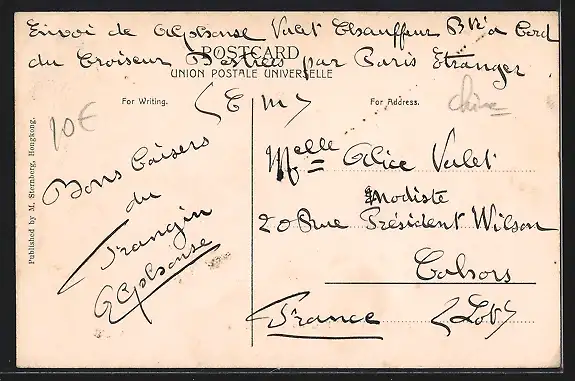 Envoi de Alphonse Valet Chauffeur Bté à Bord
du Croiseur D'estrées par Paris Etranger
POSTCARD
UNION POSTALE UNIVERSELLE
For Writing.
(E M)
For Address.
Chine
10€
Published by M. Sternberg, Hongkong.
Bons baisers
du
Frangin
Alphonse
Melle Alice Valet
Modiste
20 Rue Président Wilson
Cahors
France (Lot)